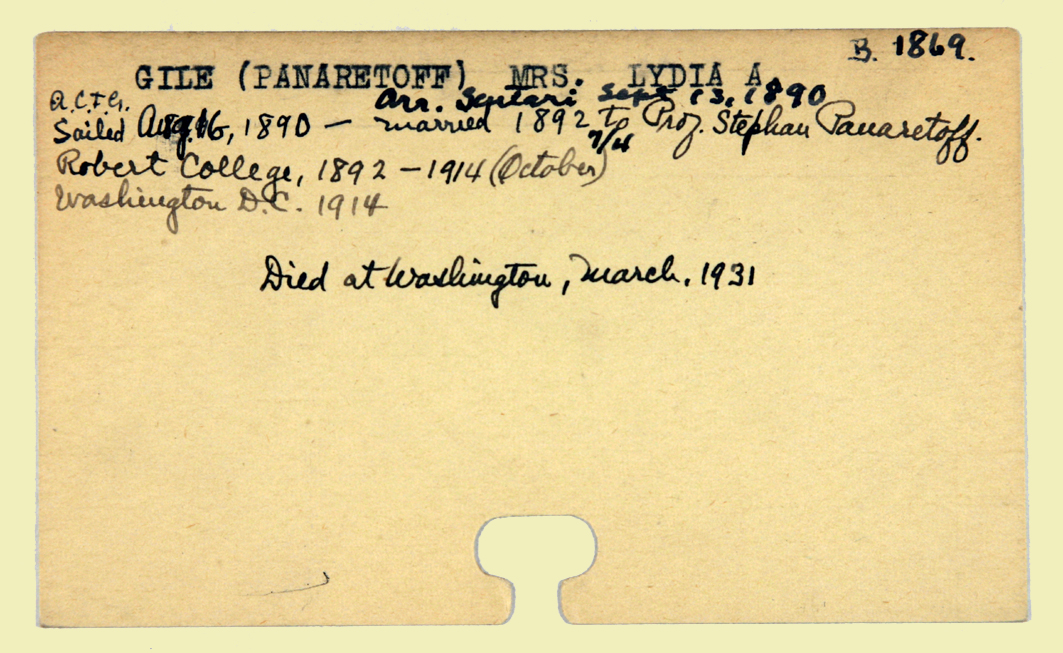 B. 1869.
GILE (PANARETOFF) MRS. LYDIA A.
A.C.F.G. Arr. Scutari Sept 13, 1890
Sailed Aug. 16, 1890 — married 1892 to Prof. Stephan Panaretoff.
7/4
Robert College, 1892 – 1914 (October)
Washington D.C. 1914
Died at Washington, March. 1931